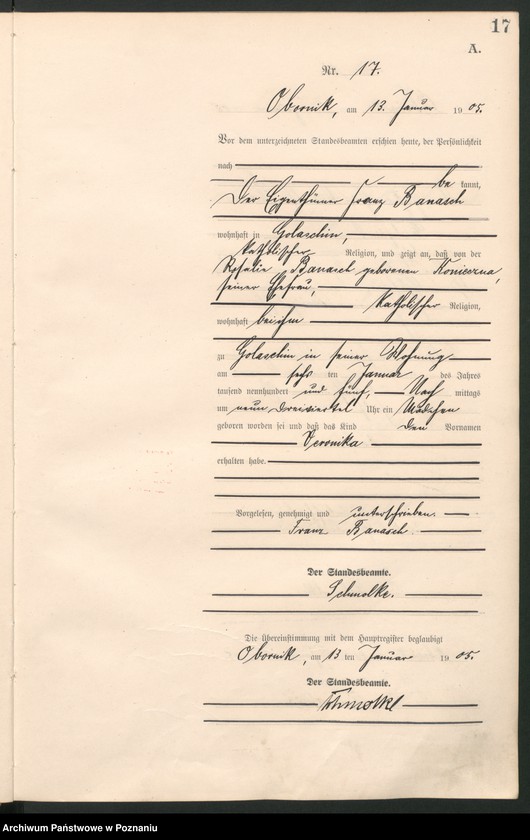 17
A.
Nr. 17.
Obornik, am 13. Januar 1905.
Vor dem unterzeichneten Standesbeamten erschien heute, der Persönlichkeit
nach
be kannt,
Der Eigenthümer Franz Banasch
wohnhaft in Golaschin,
katholischer Religion, und zeigt an, daß von der
Rosalie Banasch geborenen
seiner Ehefrau,
katholischer Religion,
wohnhaft bei ihm
zu Golaschin in seiner Wohnung
am sechs ten Januar des Jahres
tausend neunhundert und fünf, Nach mittags
um neun dreiviertel Uhr ein Mädchen
geboren worden sei und daß das Kind den Vornamen
Veronika
erhalten habe.
Vorgelesen, genehmigt und unterschrieben.
Franz Banasch.
Der Standesbeamte.
Schmolke.
Die Übereinstimmung mit dem Hauptregister beglaubigt
Obornik, am 13 ten Januar 1905.
Der Standesbeamte.
Schmolke
Archiwum Państwowe w Poznaniu